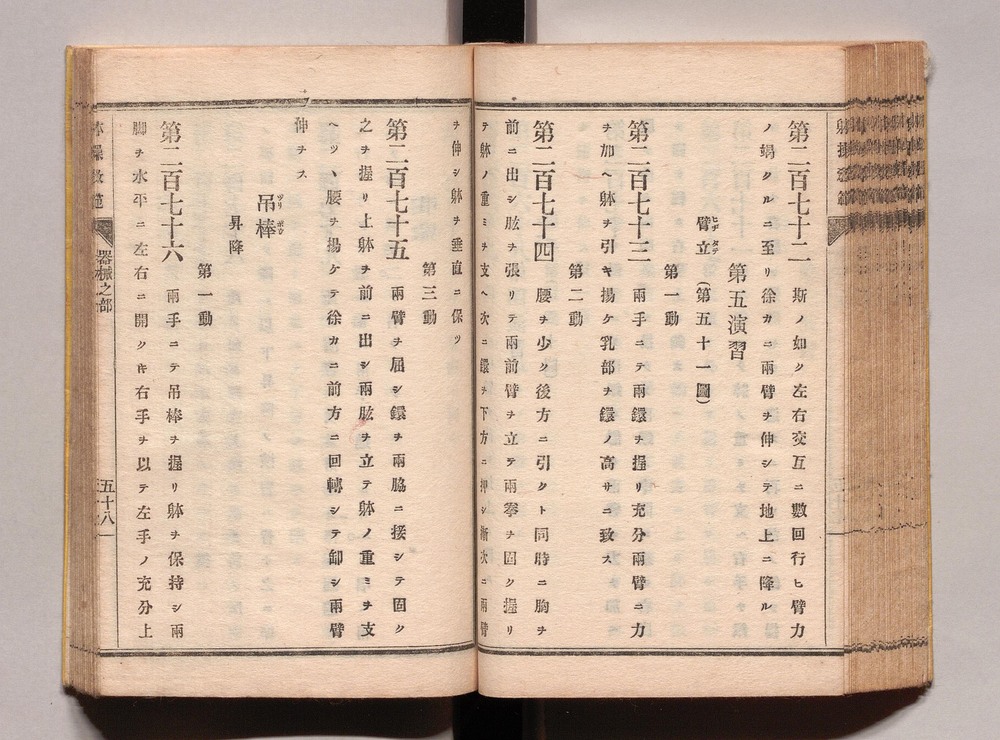 第二百七十二　斯ノ如ク左右交互ニ數回行ヒ臂力
ノ竭クルニ至リ徐カニ兩臂ヲ伸シテ地上ニ降ル
第五演習
臂立(第五十一圖)
ヒヂタテ
第一動
第二百七十三　兩手ニテ兩鐶ヲ握リ充分兩臂ニ力
ヲ加ヘ躰ヲ引キ揚ケ乳部ヲ鐶ノ高サニ致ス
第二動
第二百七十四　腰ヲ少ク後方ニ引クト同時ニ胸ヲ
前ニ出シ肱ヲ張リテ兩前臂ヲ立テ兩拳ヲ固ク握リ
テ躰ノ重ミヲ支ヘ次ニ鐶ヲ下方ニ押シ漸次ニ兩臂
ヲ伸シ躰ヲ垂直ニ保ツ
第三動
第二百七十五　兩臂ヲ屈シ鐶ヲ兩脇ニ接シテ固ク
之ヲ握リ上躰ヲ前ニ出シ兩肱ヲ立テ躰ノ重ミヲ支
ヘツヽ腰ヲ揚ケテ徐カニ前方ニ回轉シテ卸シ兩臂
伸ヲス
吊棒
ツリボウ
昇降
第一動
第二百七十六　兩手ニテ吊棒ヲ握リ躰ヲ保持シ兩
脚ヲ水平ニ左右ニ開クキ右手ヲ以テ左手ノ充分上
器械之部
五十八